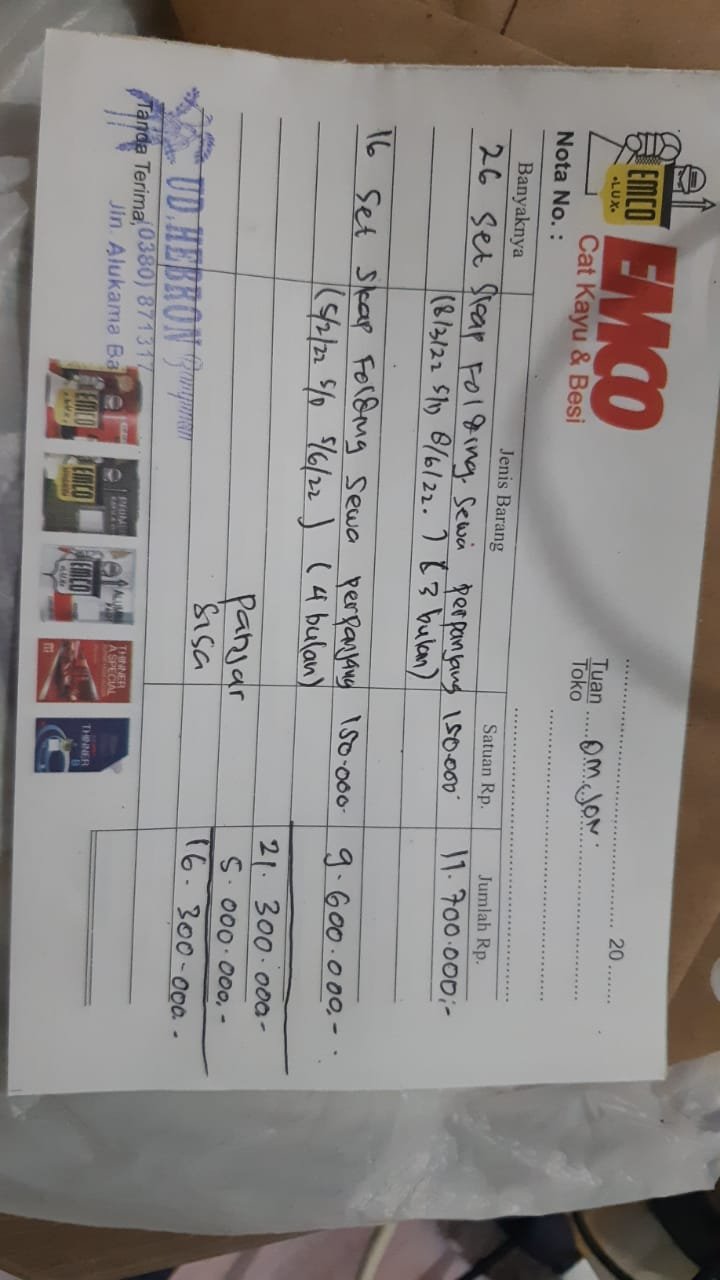 EMCO
LUX
EMCO
Cat Kayu & Besi
20
Tuan
Toko
OM JON.
Nota No. :
Banyaknya Jenis Barang Satuan Rp. Jumlah Rp.
26 Set Skap Folding Sewa perpanjang 150.000 11.700.000,-
(8/3/22 S/D 8/6/22.) (3 bulan)
16 Set Skap Folding Sewa perpanjang 150.000. 9.600.000,-
(5/2/22 S/D 5/6/22) (4 bulan)
21.300.000,-
Panjar 5.000.000,-
Sisa 16.300.000.-
UD. HEBRON Bangunan
Tanda Terima,
(0380) 871317
Jln. Alukama Ba
EMCO
EMCO
EMCO
THINNER
A SPECIAL
THINNER
B